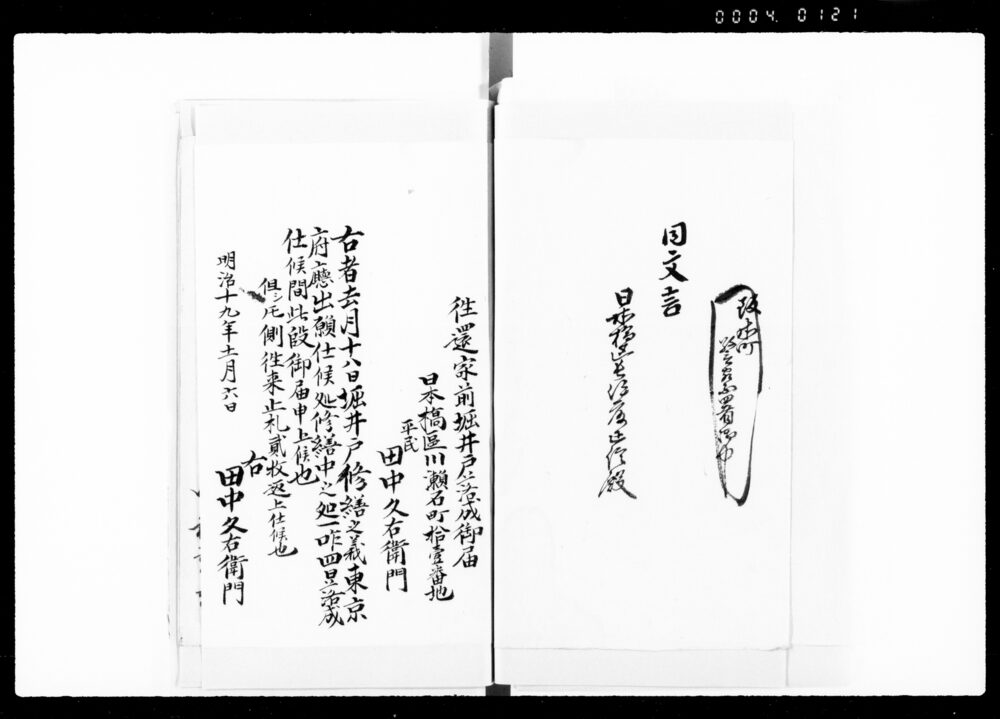 0004 0121
阪本町
警察署御中
同文言
日本橋区長伊藤正信殿
徃還家前堀井戸落成御届
日本橋區川瀬石町拾壹番地
平民
田中久右衛門
右者去月十八日堀井戸修繕之義東京
府廳出願仕候処修繕中之処一昨四日落成
仕候間此段御届申上候也
但シ片側徃来止札貳枚返上仕候也
明治十九年十一月六日
右
田中久右衛門